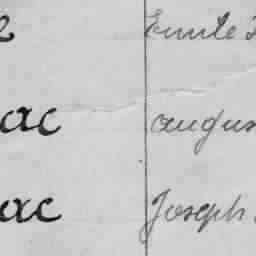 Emile
ac augus
ac Joseph